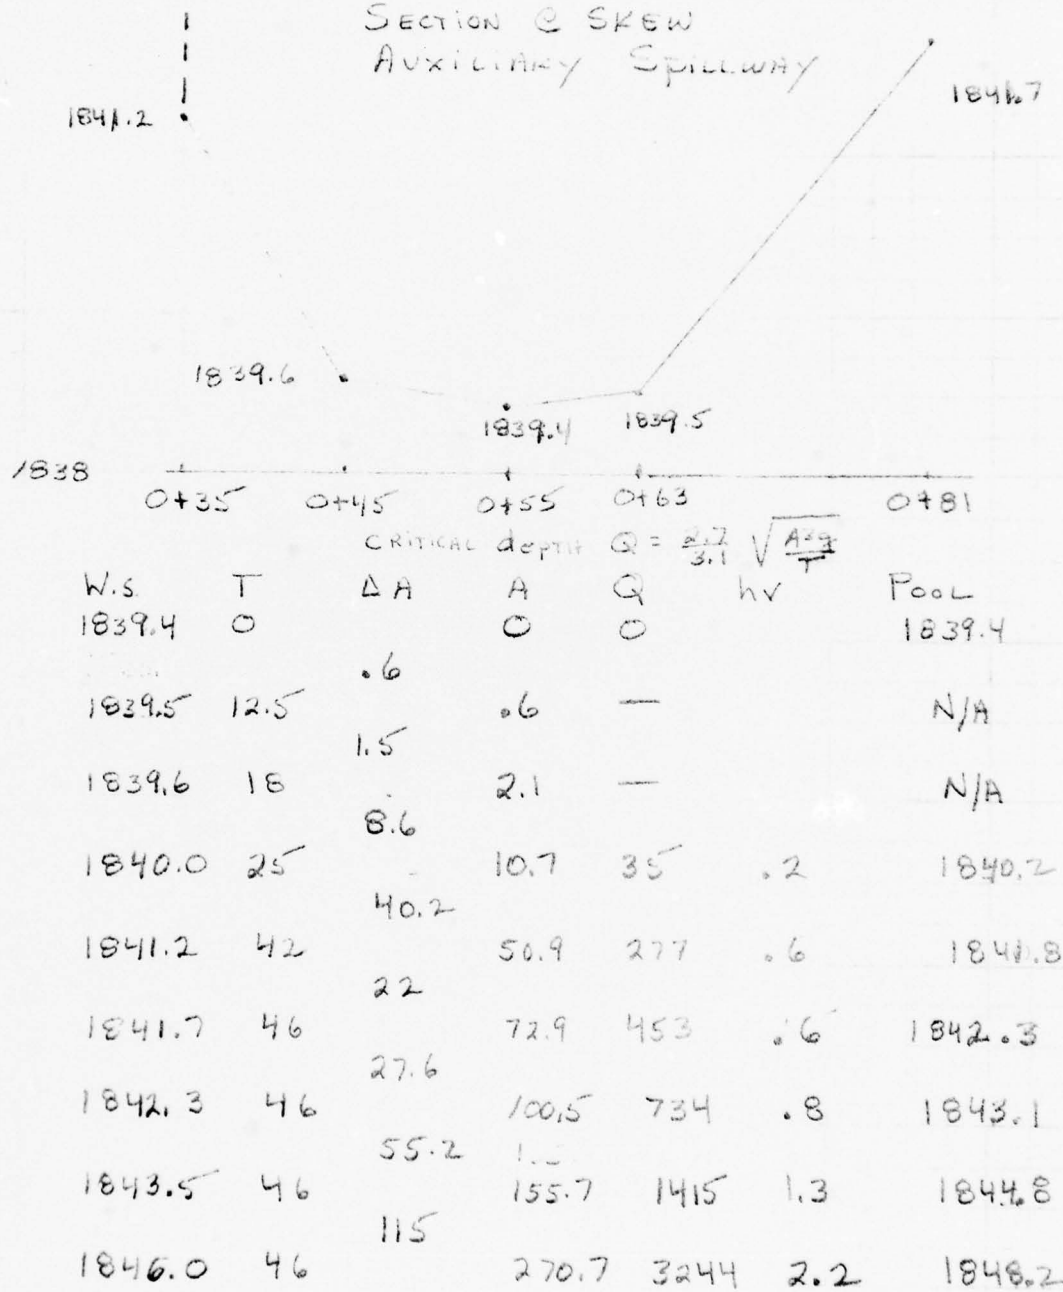 SECTION @ SKEW
AUXILIARY SPILLWAY
1841.2
1841.7
1839.6
1839.4
1839.5
1838
0+35 0+45 0+55 0+63 0+81
CRITICAL depth Q = 2.7/3.1 √A³g/T
W.S. T ΔA A Q hv POOL
1839.4 0 0 0 1839.4
.6
1839.5 12.5 .6 — N/A
1.5
1839.6 18 2.1 — N/A
8.6
1840.0 25 10.7 35 .2 1840.2
40.2
1841.2 42 50.9 277 .6 1841.8
22
1841.7 46 72.9 453 .6 1842.3
27.6
1842.3 46 100.5 734 .8 1843.1
55.2
1843.5 46 155.7 1415 1.3 1844.8
115
1846.0 46 270.7 3244 2.2 1848.2